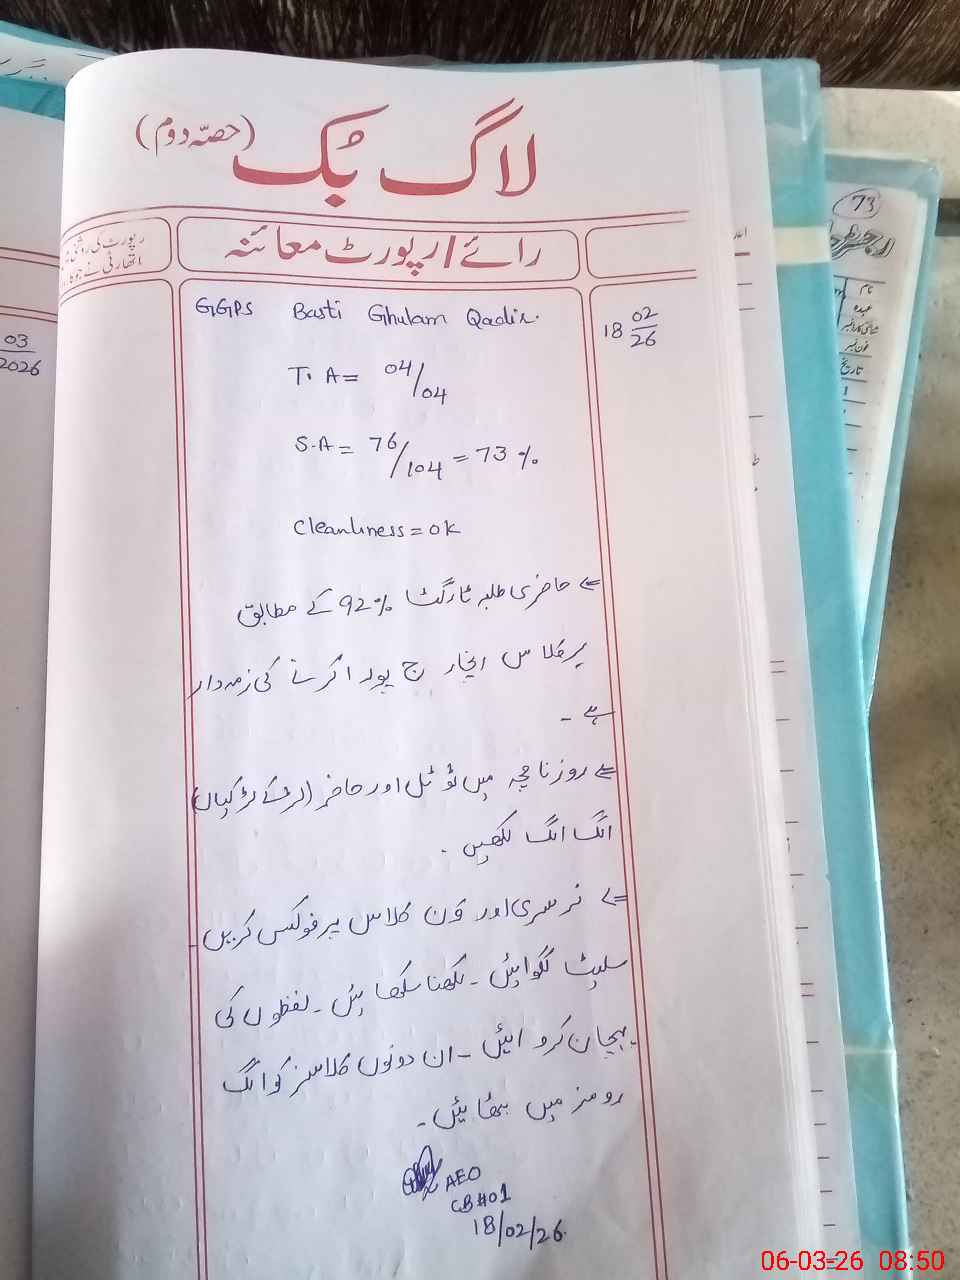 لاگ بُک (حصّہ دوم)
رائے/رپورٹ معائنہ
رپورٹ کی روشنی
اتھارٹی نے جو
03
2026
18 02/26
GGPS Basti Ghulam Qadir.
T. A = 04/04
S.A = 76/104 = 73 %
Cleanliness = ok
⇐ حاضری طلبہ ٹارگٹ 92% کے مطابق
ہر کلاس انچارج پورا کرنے کی زمہ دار
ہے -
⇐ روزنامچہ میں ٹوٹل اور حاضر (لڑکے لڑکیاں)
الگ الگ لکھیں -
⇐ نرسری اور ون کلاس پر فوکس کریں -
سلیٹ لگوائیں - لکھنا سکھائیں - لفظوں کی
پہچان کروائیں - ان دونوں کلاسز کو الگ
رومز میں بٹھائیں -
AEO
CB#01
18/02/26
73
نام
عہدہ
فون نمبر
تاریخ
06-03-26 08:50